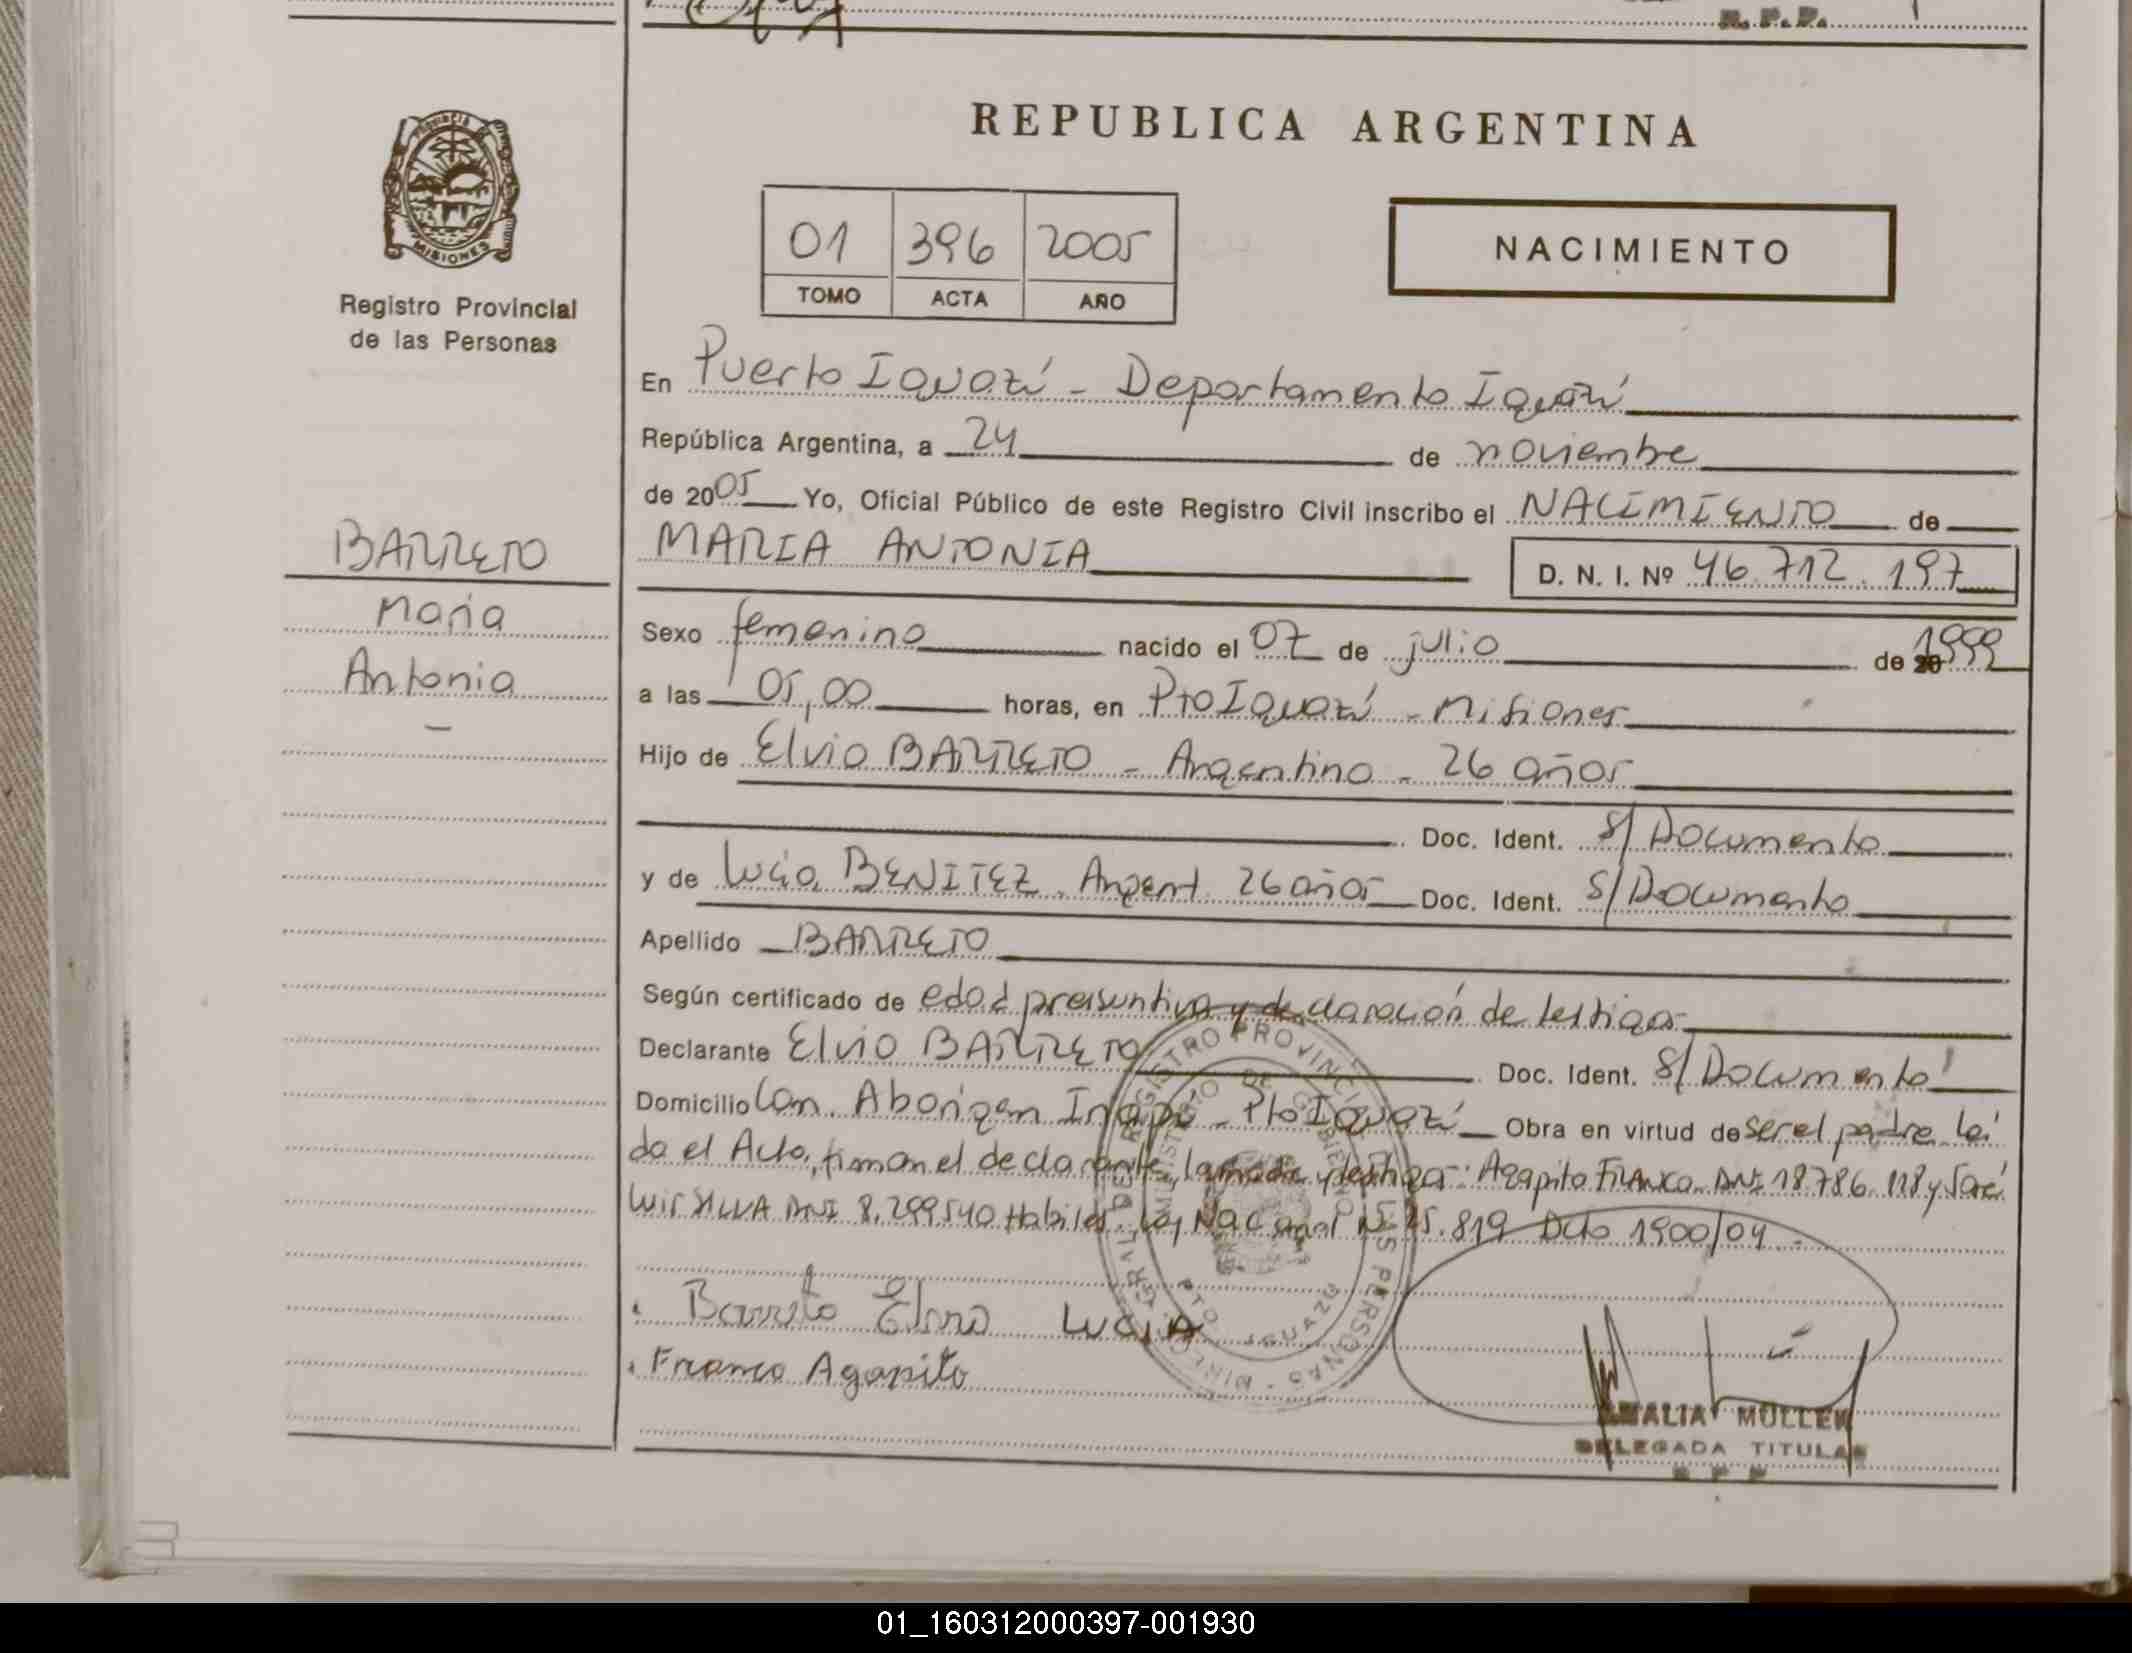 R. P. P.
REPUBLICA ARGENTINA
PROVINCIA DE
MISIONES
Registro Provincial
de las Personas
01 396 2005
TOMO ACTA AÑO
NACIMIENTO
En Puerto Iguazú - Departamento Iguazú
República Argentina, a 24 de noviembre
de 2005 Yo, Oficial Público de este Registro Civil inscribo el NACIMIENTO de
BARRETO
Maria
Antonia
MARIA ANTONIA D. N. I. Nº 46.712.197
Sexo femenino nacido el 07 de julio de 1999
a las 05,00 horas, en Pto Iguazú - Misiones
Hijo de Elvio BARRETO - Argentino - 26 años
Doc. Ident. S/Documento
y de Lucia BENITEZ. Argent. 26 años Doc. Ident. S/Documento
Apellido BARRETO
Según certificado de edad presuntiva y declaración de testigos
Declarante Elvio BARRETO Doc. Ident. S/Documento
Domicilio Com. Aborigen - Pto Iguazú Obra en virtud de ser el padre Leí
do el Acta, firman el declarante, la madre y testigos: Agapito FRANCO DNI 18.786.118 y José
Luis SILVA DNI 8.299.540 Habiles. Ley Nacional Nº 25.819 Dcto 1900/04 -
Barreto Elvio LUCIA
Franco Agapito
REGISTRO PROVINCIAL DE LAS PERSONAS
MINISTERIO DE GOBIERNO
PTO IGUAZU
AMALIA MULLER
DELEGADA TITULAR
R P P
01_160312000397-001930